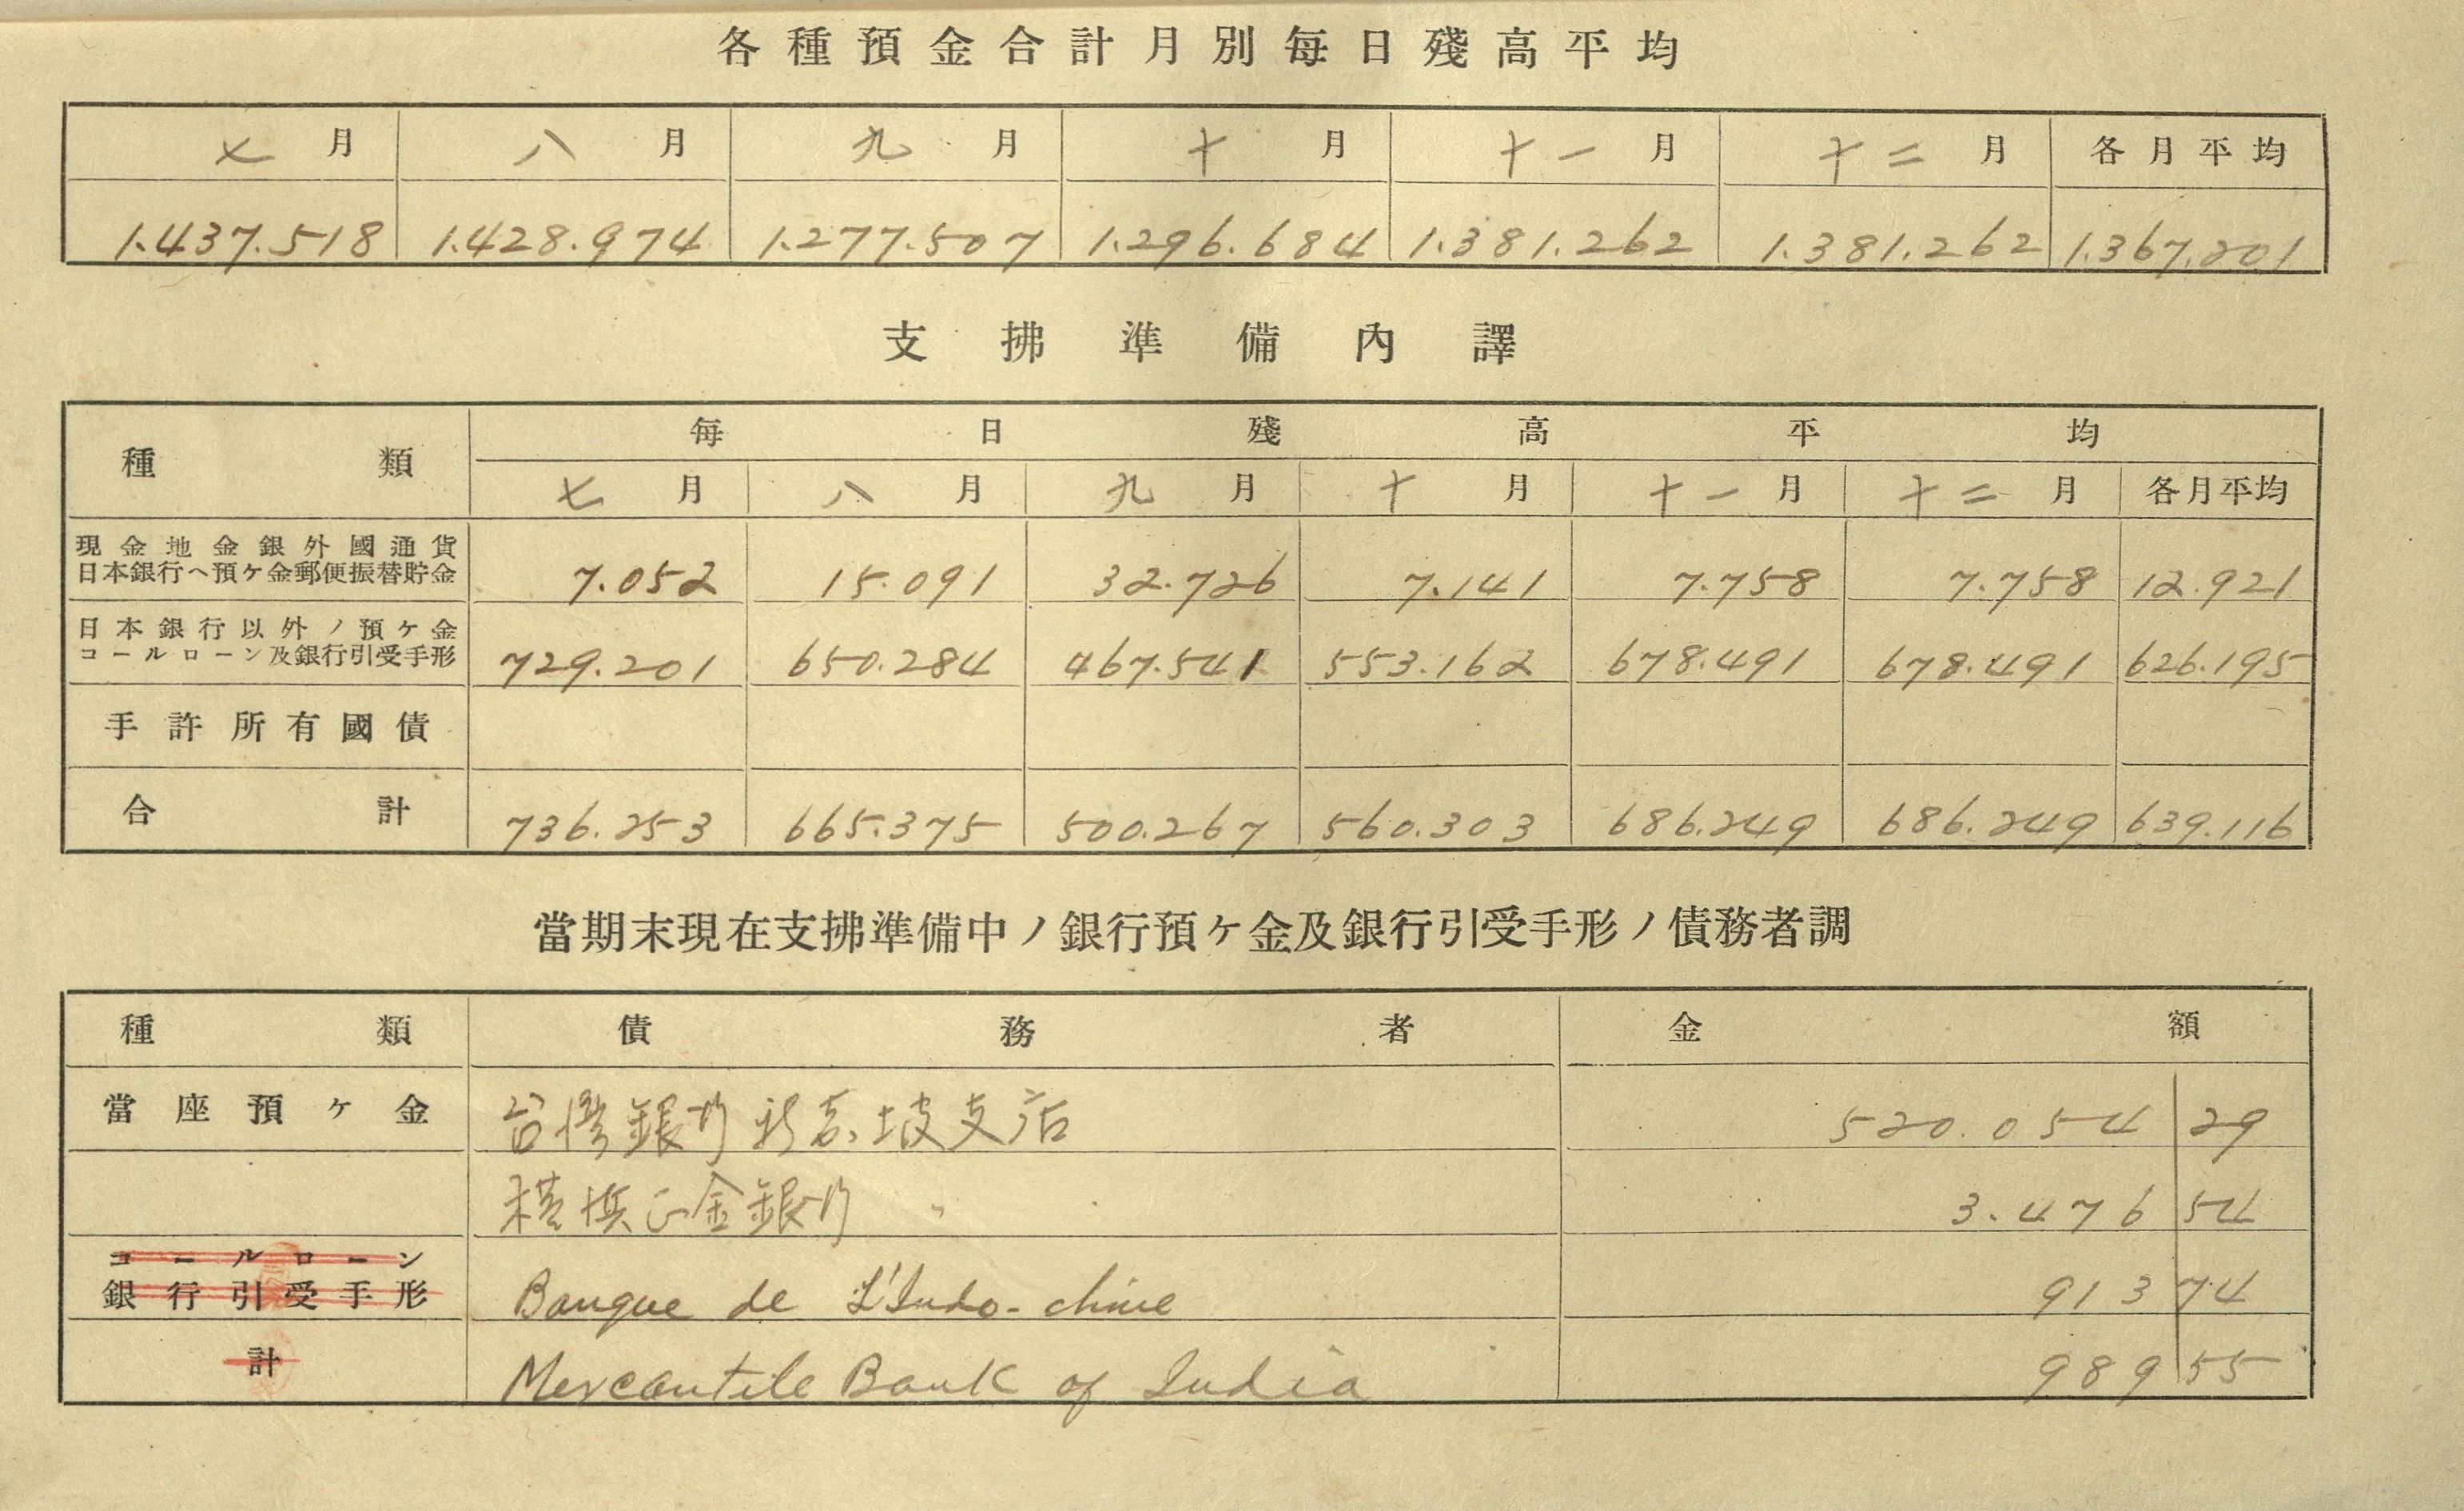 各種預金合計月別每日殘高平均
七月 八月 九月 十月 十一月 十二月 各月平均
1.437.518 1.428.974 1.277.507 1.296.684 1.381.262 1.381.262 1.367.201
支拂準備內譯
種類 每日殘高平均
七月 八月 九月 十月 十一月 十二月 各月平均
現金地金銀外國通貨
日本銀行ヘ預ケ金郵便振替貯金 7.052 15.091 32.726 7.141 7.758 7.758 12.921
日本銀行以外ノ預ケ金
コールローン及銀行引受手形 729.201 650.284 467.541 553.162 678.491 678.491 626.195
手許所有國債
合計 736.253 665.375 500.267 560.303 686.249 686.249 639.116
當期末現在支拂準備中ノ銀行預ケ金及銀行引受手形ノ債務者調
種類 債務者 金額
當座預ケ金 台灣銀行新嘉坡支店 520.054 29
橫濱正金銀行 〃 3.476 54
コールローン
銀行引受手形 Banque de L'Indo-chine 913 74
計 Mercantile Bank of India 989 55